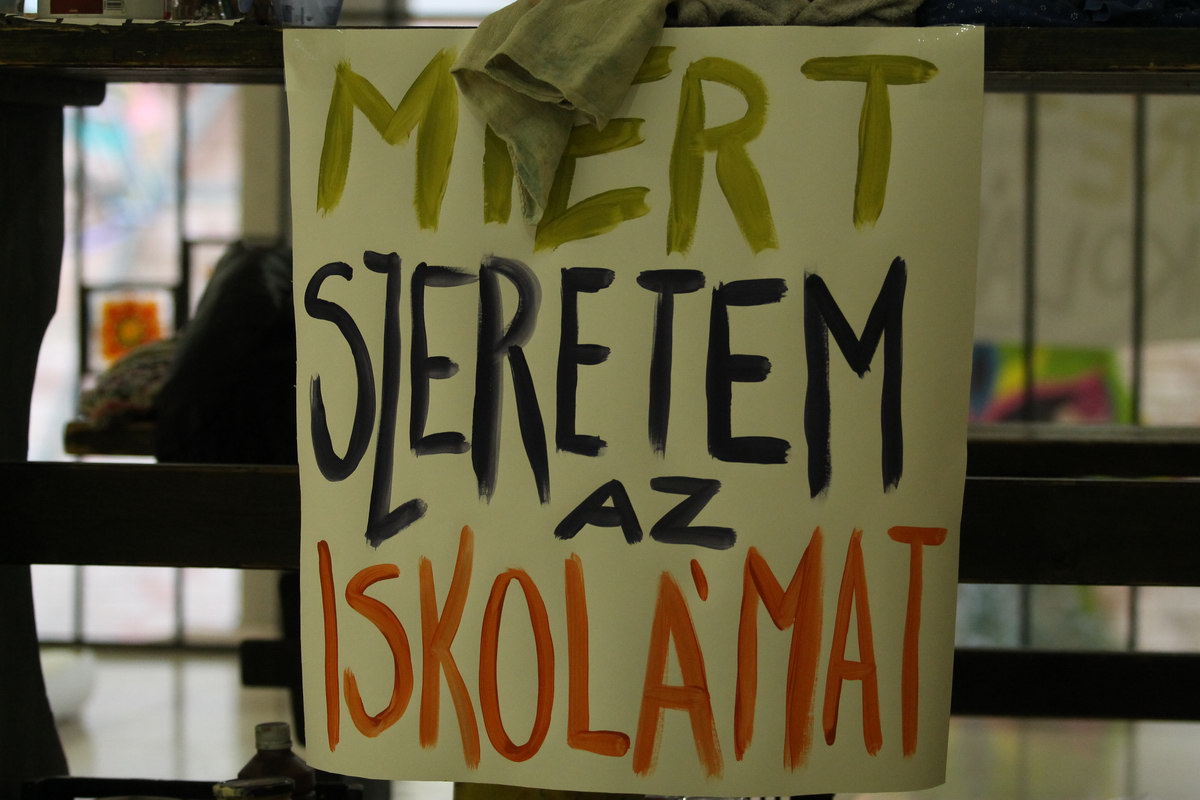 MIERT
SZERETEM
AZ
ISKOLÁMAT